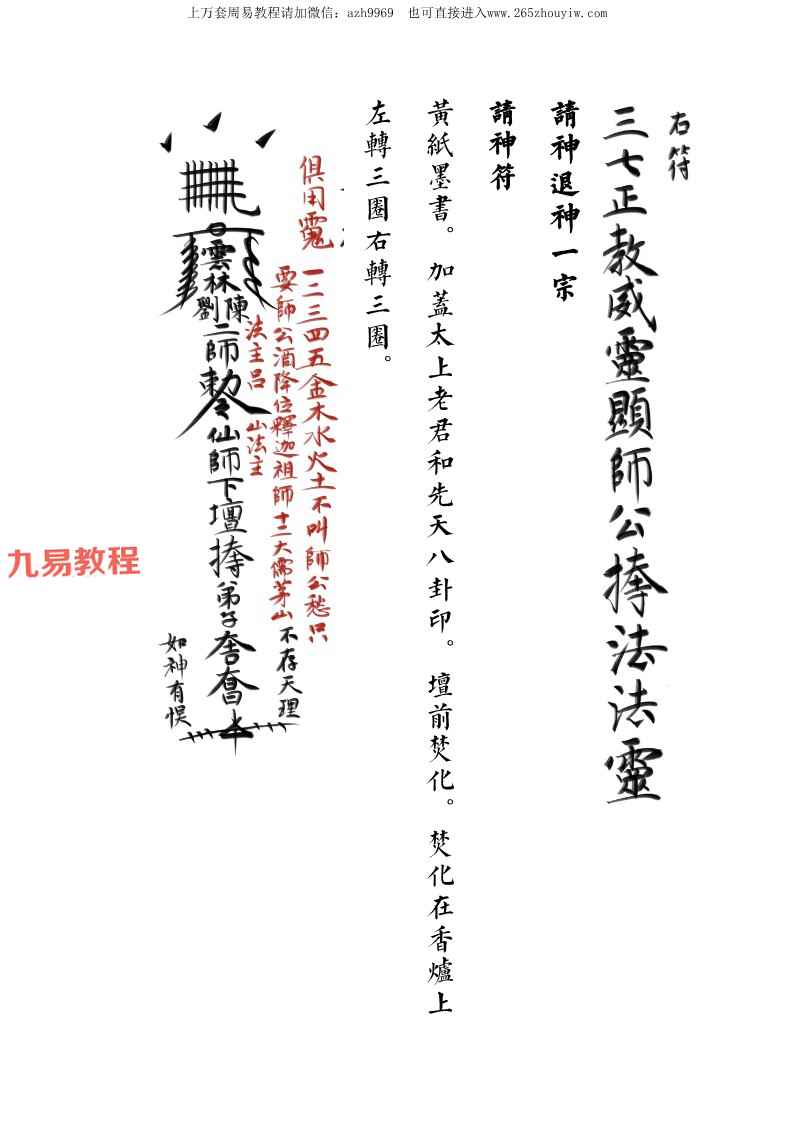 上万套周易教程请加微信：azh9969　也可直接进入www.265zhouyiw.com
右符
三七正教威靈顯師公捧法法靈
請神退神一宗
請神符
黃紙墨書。加蓋太上老君和先天八卦印。壇前焚化。焚化在香爐上
左轉三圈右轉三圈。
俱用
一二三四五金木水火土不叫師公愁只
要師公酒降位釋迦祖師十二大儒茅山
不存天理
法主呂山法主
雲林陳劉二師敕令仙師下壇捧弟子
如神有悞
九易教程